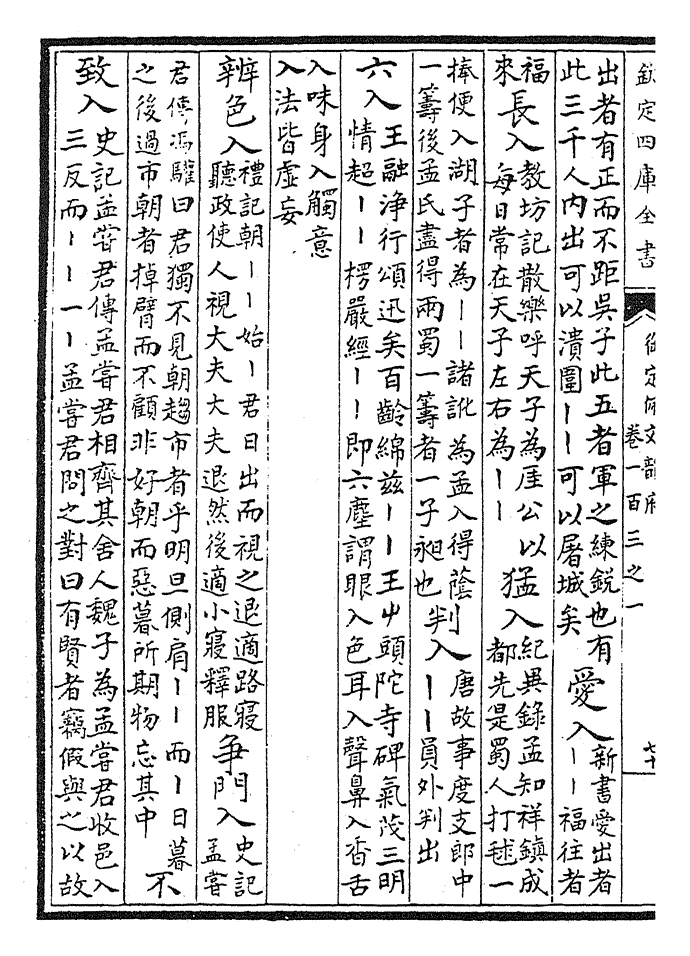 欽定四庫全書
御定佩文韻府
卷一百三之一
七十
出者有正而不距吳子此五者軍之練銳也有
此三千人内出可以潰圍丨丨可以屠城矣
愛入
新書愛出者
丨丨福往者
福
來
長入
教坊記散樂呼天子為厓公以
每日常在天子左右為丨丨
猛入
紀異錄孟知祥鎮成
都先是蜀人打毬一
捧便入湖子者為丨丨諸訛為孟入得蔭
一籌後孟氏盡得兩蜀一籌者一子昶也
判入
唐故事度支郎中
丨丨員外判出
六入
王融浄行頌迅矣百齡綿兹丨丨王屮頭陀寺碑氣茂三明
情超丨丨楞嚴經丨丨即六塵謂眼入色耳入聲鼻入香舌
入味身入觸意
入法皆虛妄
辨色入
禮記朝丨丨始丨君日出而視之退適路寢
聽政使人視大夫大夫退然後適小寢釋服
爭門入
史記
孟嘗
君傳馮驩曰君獨不見朝趨市者乎明旦側肩丨丨而丨日暮
之後過市朝者掉臂而不顧非好朝而惡暮所期物忘其中
不
致入
史記孟嘗君傳孟嘗君相齊其舍人魏子為孟嘗君收邑入
三反而丨丨一丨孟嘗君問之對曰有賢者竊假與之以故